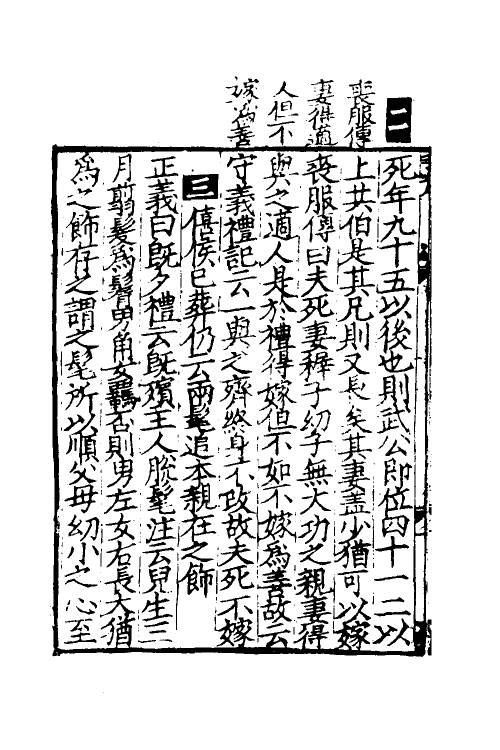 二
喪服傳
妻得適
人但不
嫁爲善
死年九十五以後也則武公即位四十一二以
上共伯是其兄則又長矣其妻蓋少猶可以嫁
喪服傳曰夫死妻穉子幼子無大功之親妻得
與之適人是於禮得嫁但不如不嫁爲善故云
守義禮記云一與之齊終身不改故夫死不嫁
三 僖侯已葬仍云兩髦追本親在之飾
正義曰旣夕禮云旣殯主人脫髦注云兒生三
月翦髮爲鬌男角女羈否則男左女右長大猶
爲之飾存之謂之髦所以順父母幼小之心至